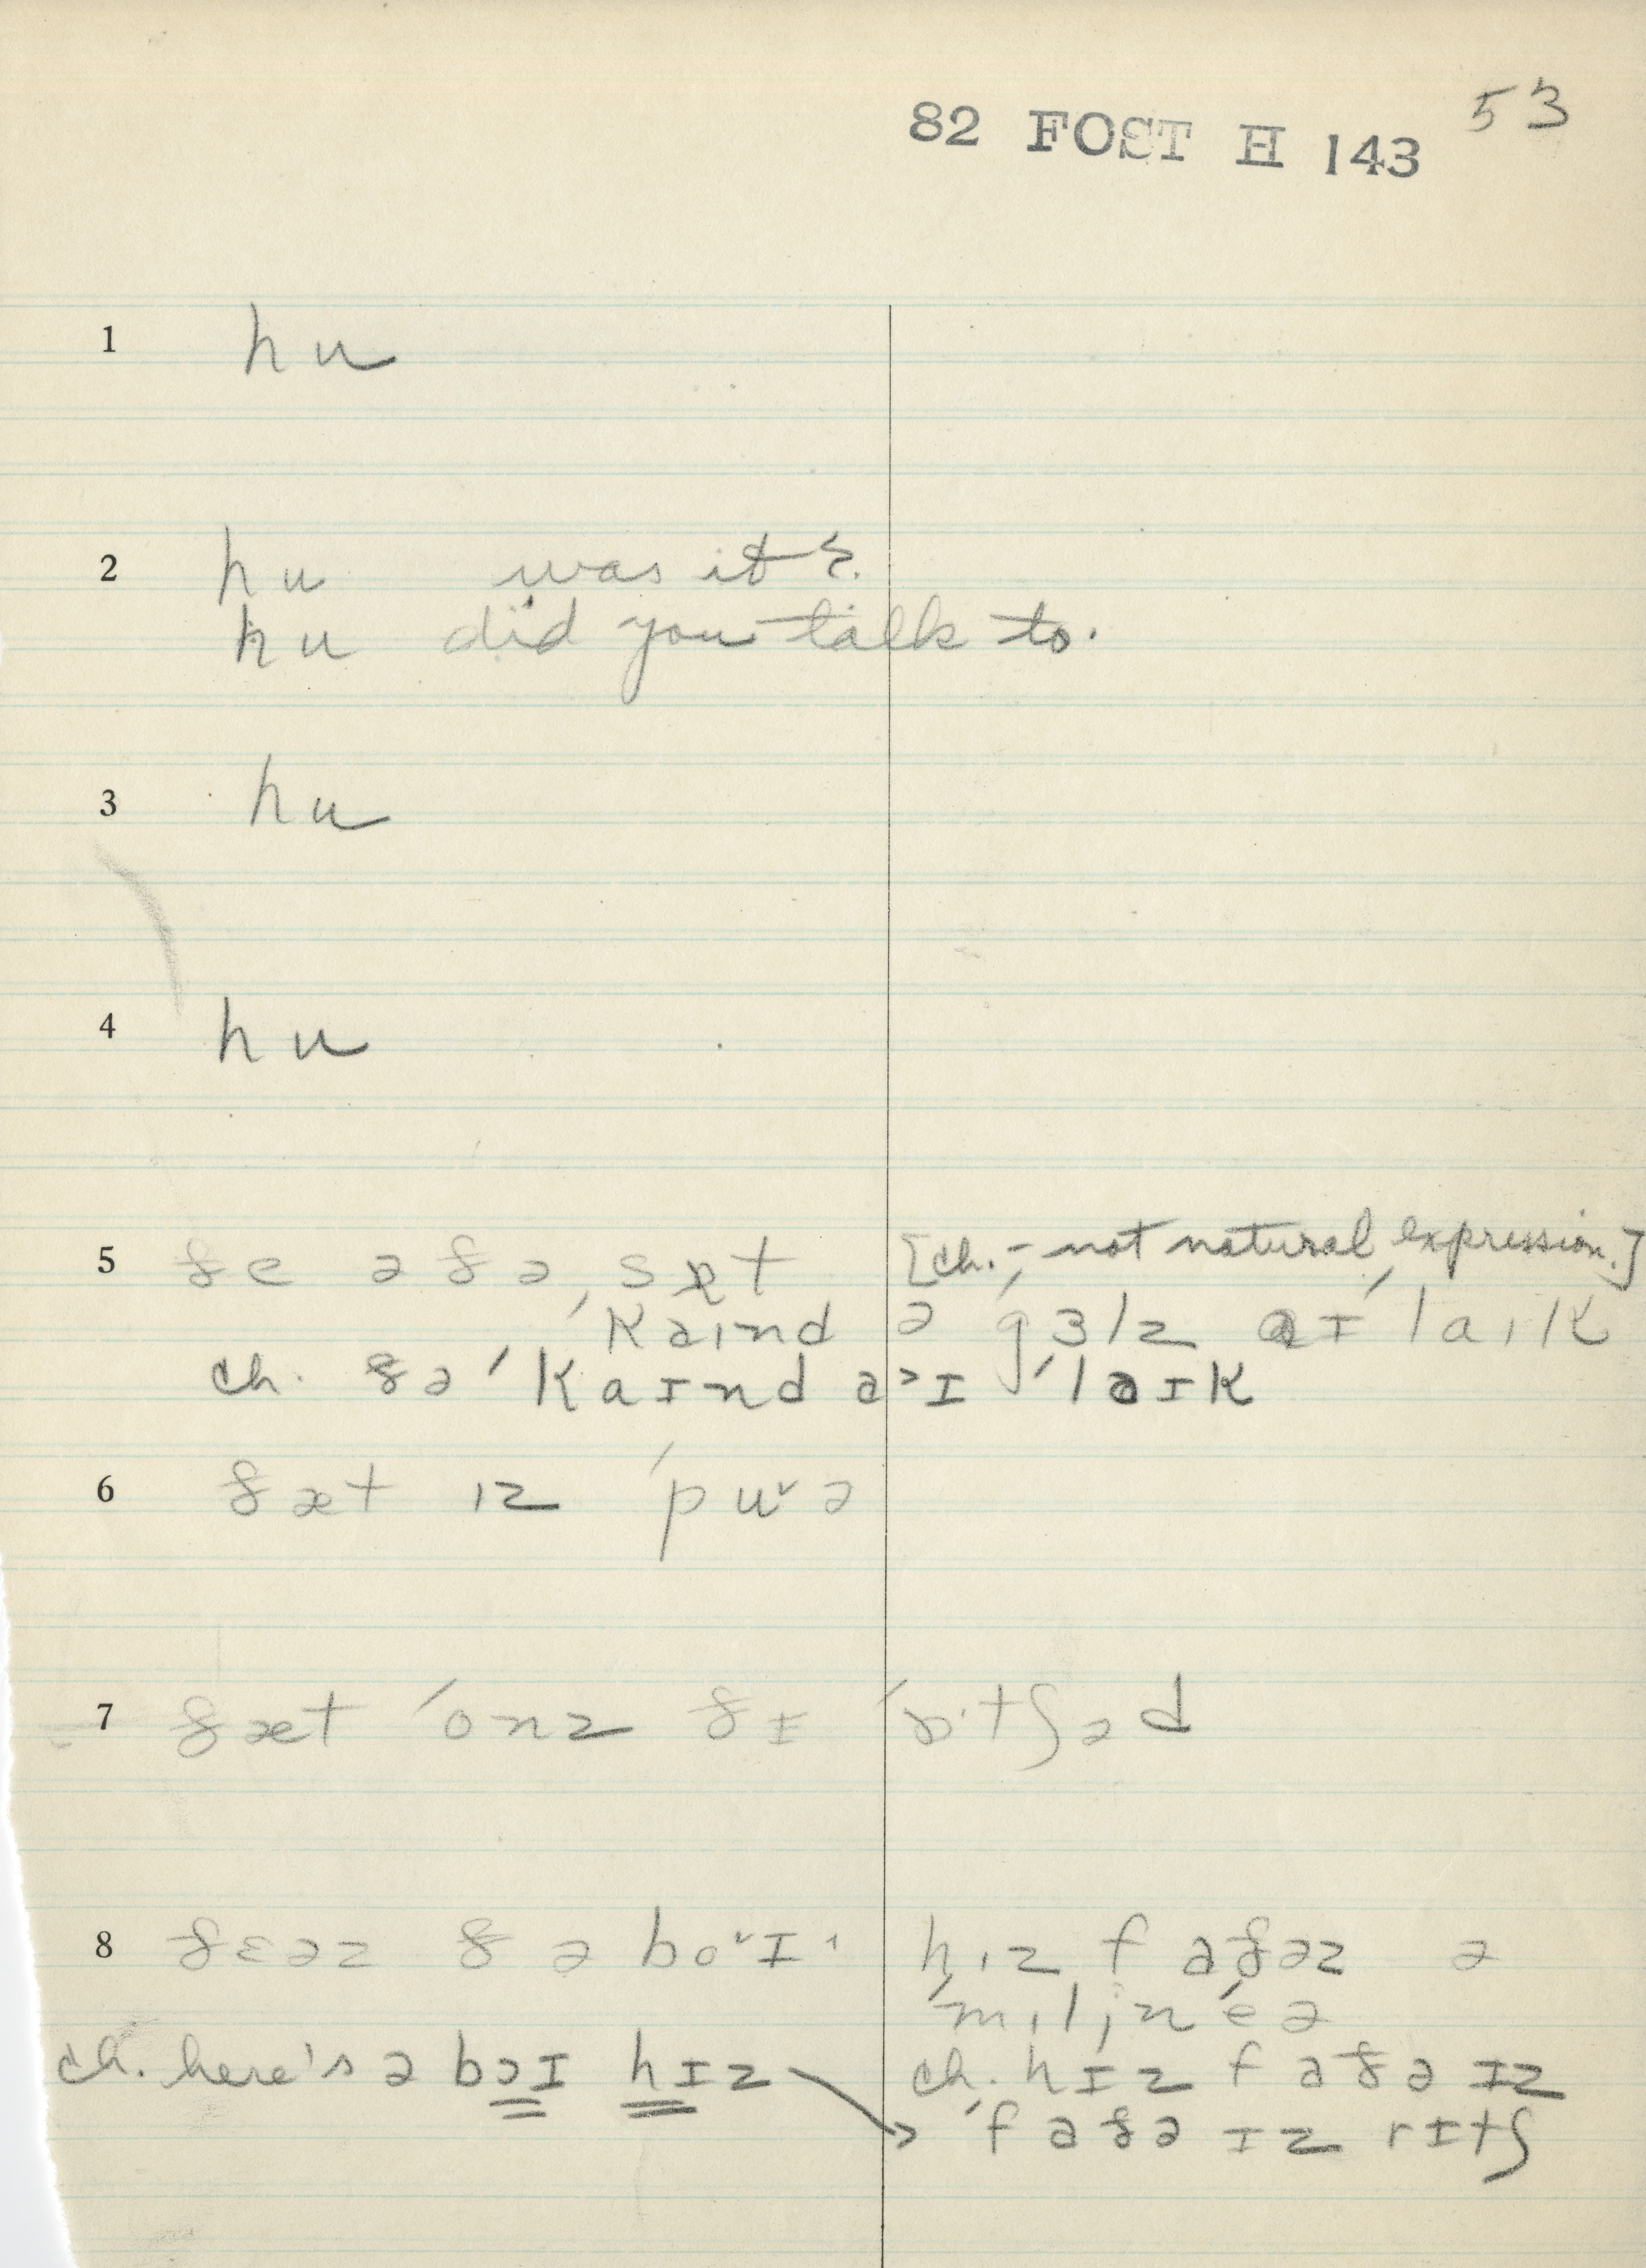 82 FOST H 143 53
1 hu
2 hu was it?
hu did you talk to.
3 hu
4 hu
5 ðe aðə sɛt [ch. – not natural expression.]
ˈkaɪnd ə gɜlz aɪ ˈlaɪk
ch. ðə ˈkaɪnd əv aɪ ˈlaɪk
6 ðæt ɪz ˈpuə
7 ðæt ˈonz ðɪ ˈɒtʃəd
8 ðɛəz ðə bɔɪ hɪz faðəz ə
ˈmɪljnˈeə
ch. here's ə bɔɪ hɪz ch. hɪz faðə ɪz
ˈfaðə ɪz rɪtʃ